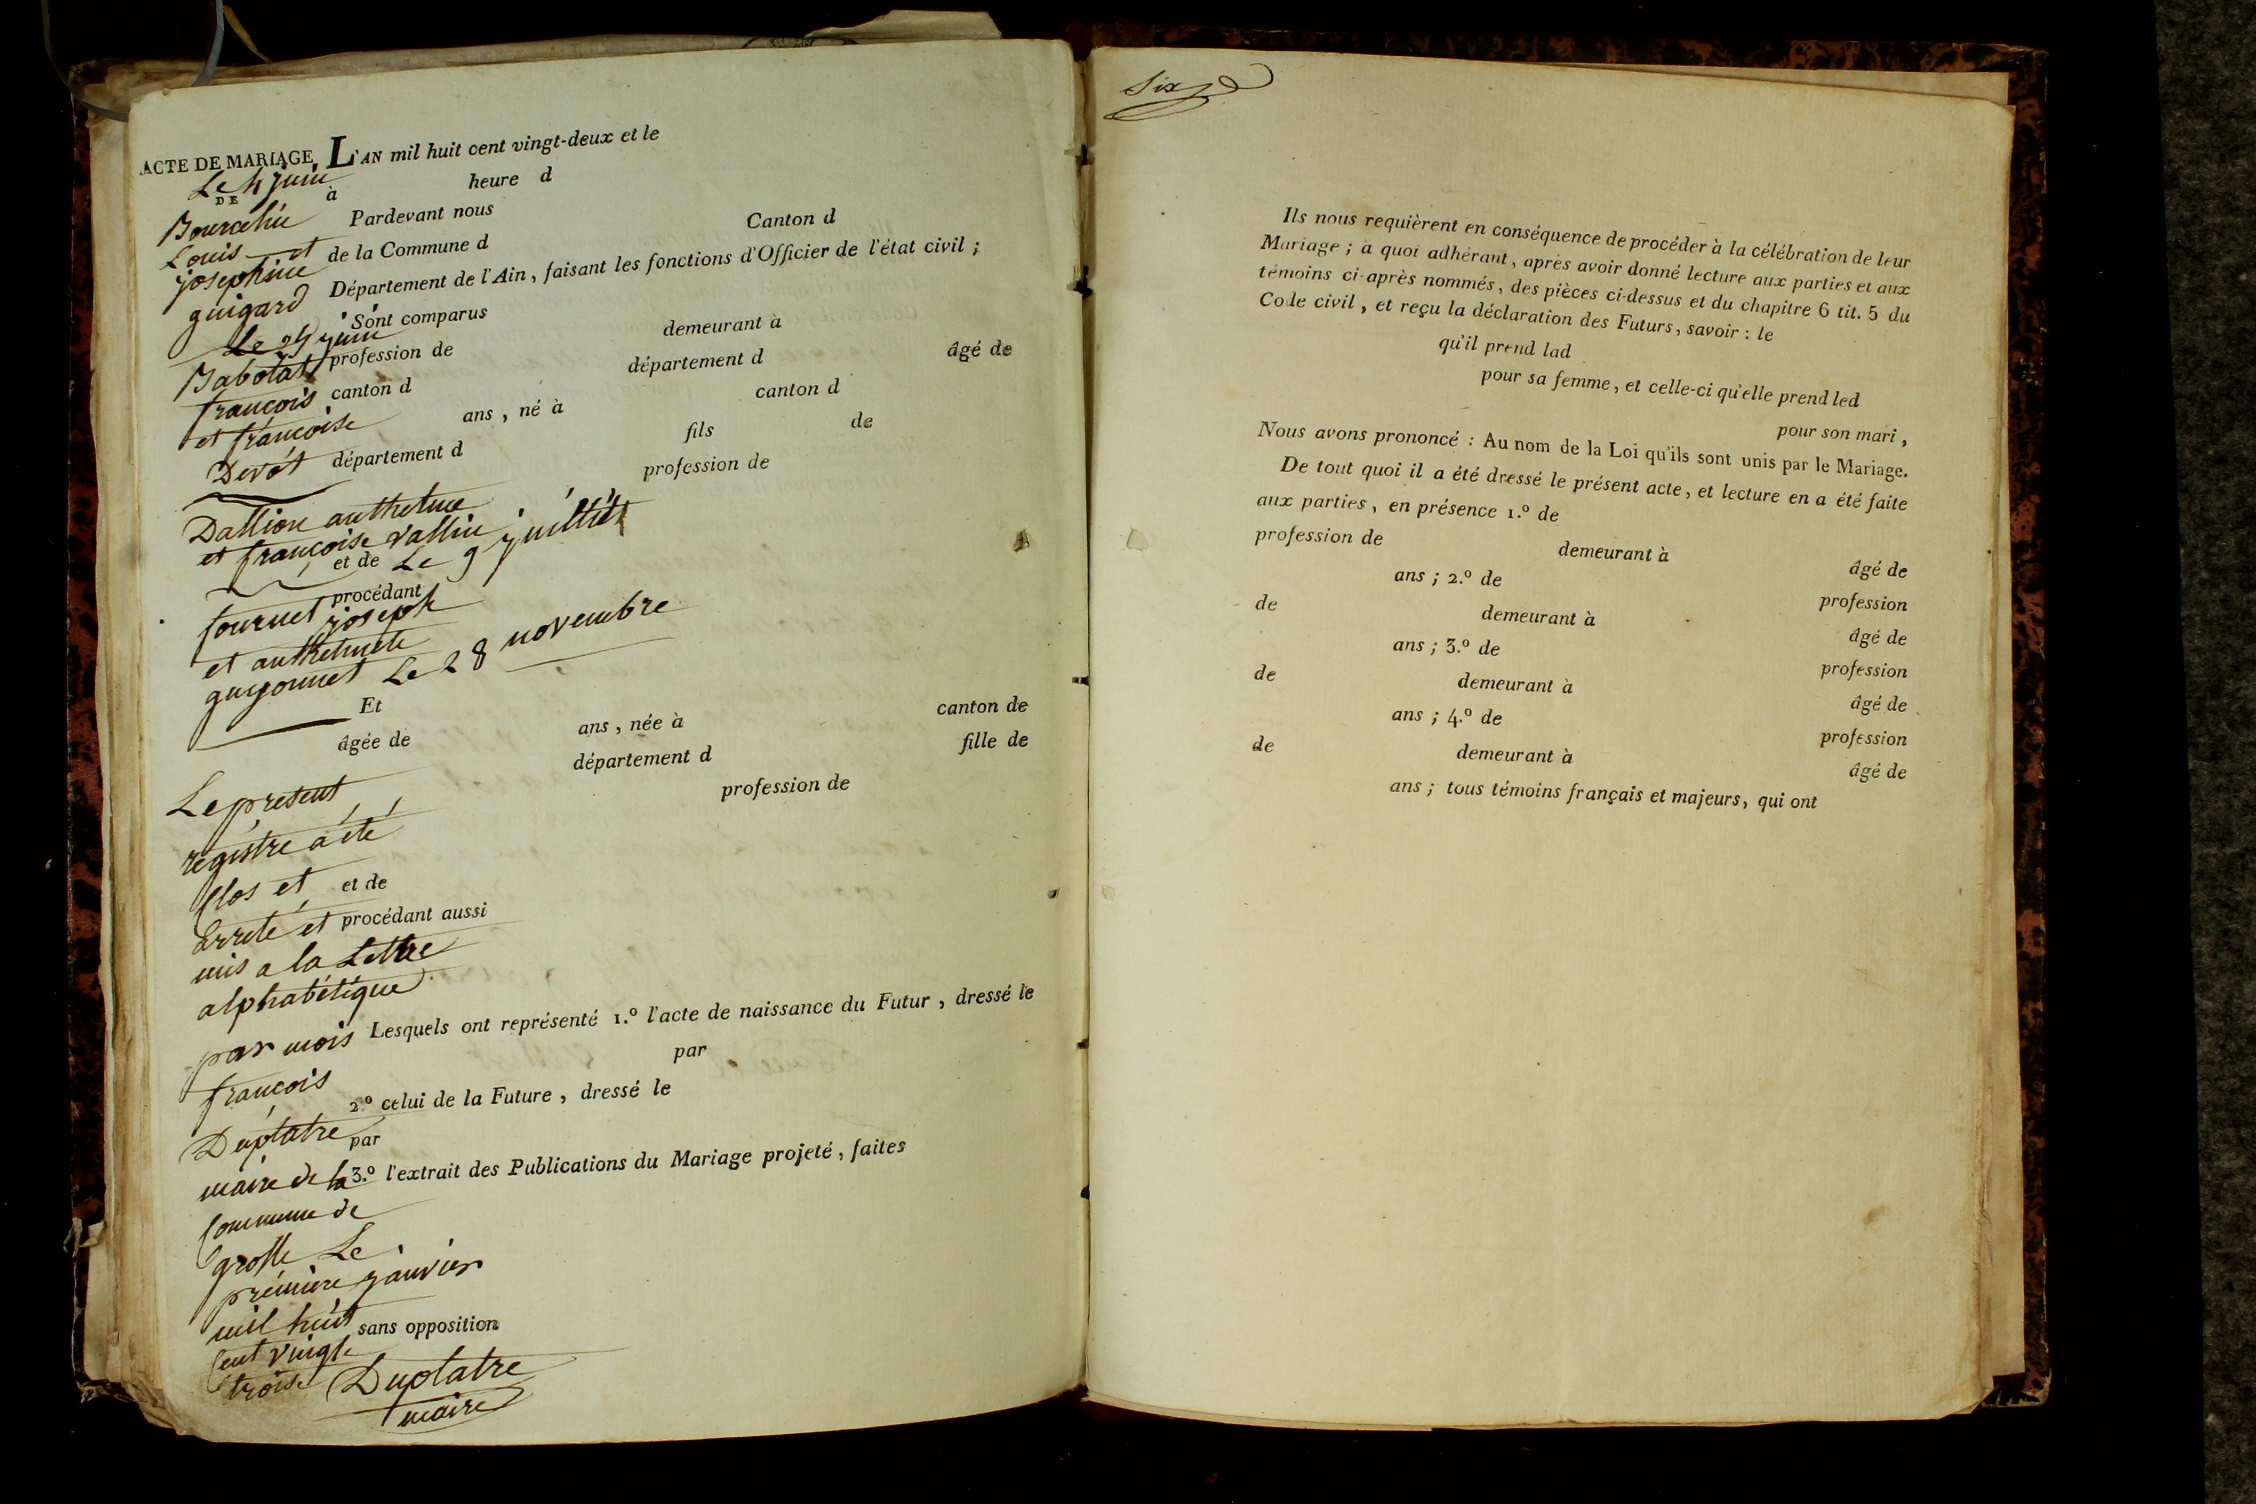 ACTE DE MARIAGE L'AN mil huit cent vingt-deux et le
Le 4 juin
DE
à heure d
Bourcelin
Pardevant nous
Louis et
de la Commune d Canton d
josephine
guigard
Département de l'Ain, faisant les fonctions d'Officier de l'état civil ;
Sont comparus
Le 24 juin
profession de demeurant à
Babolat
françois
canton d département d âgé de
et françoise
ans , né à canton d
Devot
département d fils de
profession de
Dallion anthelme
et françoise vallin
et de Le 9 juilliét
procédant
fournet joseph
et anthelmete
guyonnet Le 28 novembre
Et
âgée de ans , née à canton de
département d fille de
profession de
Le present
régistre a été
Clos et
et de
Arreté et procédant aussi
mis a la Lettre
alphabétique
par mois
Lesquels ont représenté 1.º l'acte de naissance du Futur , dressé le
par
françois
2.º celui de la Future , dressé le
Duplatre
par
maire de la
3.º l'extrait des Publications du Mariage projeté , faites
Commune de
Le
premiere janvier
mil huit
sans opposition
Cent vingt
troise
Duplatre
maire
Six
Ils nous requièrent en conséquence de procéder à la célébration de leur
Mariage ; à quoi adhérant, après avoir donné lecture aux parties et aux
témoins ci-après nommés, des pièces ci-dessus et du chapitre 6 tit. 5 du
Code civil , et reçu la déclaration des Futurs, savoir : le
qu'il prend lad
pour sa femme, et celle-ci qu'elle prend led
pour son mari ,
Nous avons prononcé : Au nom de la Loi qu'ils sont unis par le Mariage.
De tout quoi il a été dressé le présent acte, et lecture en a été faite
aux parties, en présence 1.º de
profession de demeurant à âgé de
ans ; 2.º de profession
de demeurant à âgé de
ans ; 3.º de profession
de demeurant à âgé de
ans ; 4.º de profession
de demeurant à âgé de
ans ; tous témoins français et majeurs, qui ont